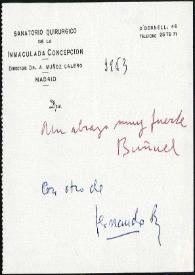 SANATORIO QUIRURGICO
DE LA
INMACULADA CONCEPCION
DIRECTOR: DR. A. MUÑOZ CALERO
MADRID
O'DONNELL, 46
TELEFONO 26 79 71
1963
Dn.
Un abrazo muy fuerte
Buñuel
Con otro de
Fernando R